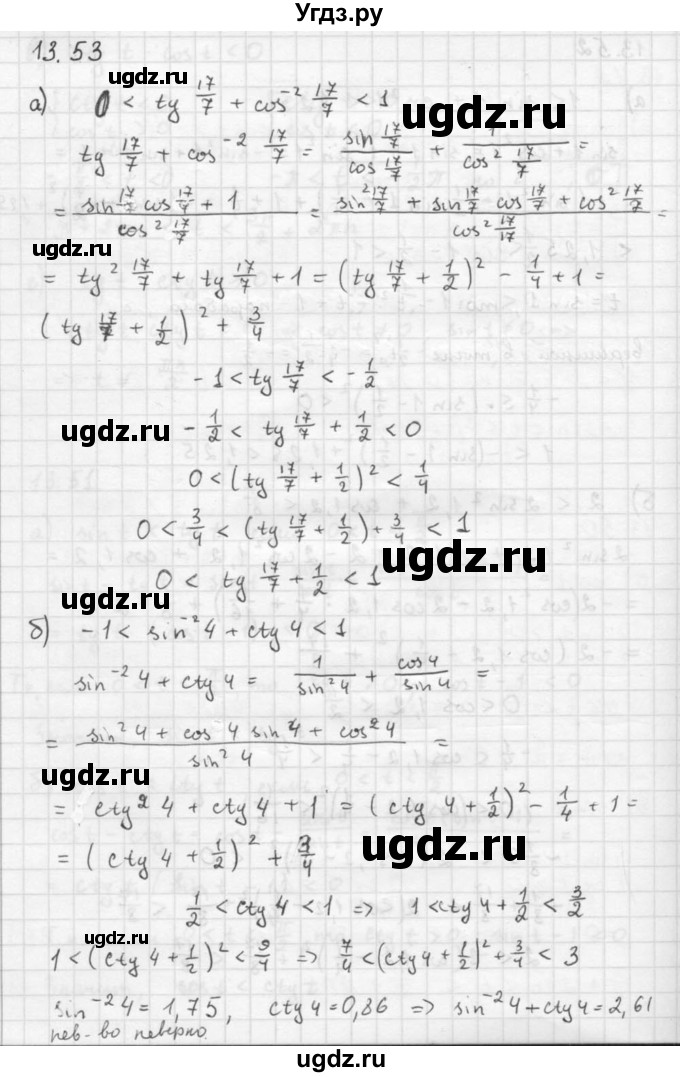 Угдз.ру
13.53
ugdz.ru
а) 0 < tg 17/7 + cos⁻² 17/7 < 1
ugdz.ru
tg 17/7 + cos⁻² 17/7 = sin 17/7 / cos 17/7 + 1 / cos² 17/7 =
= (sin 17/7 cos 17/7 + 1) / cos² 17/7 = (sin² 17/7 + sin 17/7 cos 17/7 + cos² 17/7) / cos² 17/17 =
ugdz.ru
= tg² 17/7 + tg 17/7 + 1 = (tg 17/7 + 1/2)² - 1/4 + 1 =
(tg 17/7 + 1/2)² + 3/4
-1 < tg 17/7 < -1/2
ugdz.ru
-1/2 < tg 17/7 + 1/2 < 0
0 < (tg 17/7 + 1/2)² < 1/4
0 < 3/4 < (tg 17/7 + 1/2) + 3/4 < 1
ugdz.ru
0 < tg 17/7 + 1/2 < 1
ugdz.ru
б) -1 < sin⁻² 4 + ctg 4 < 1
sin⁻² 4 + ctg 4 = 1 / sin² 4 + cos 4 / sin 4 =
= (sin² 4 + cos 4 sin 4 + cos² 4) / sin² 4 =
ugdz.ru
= ctg² 4 + ctg 4 + 1 = (ctg 4 + 1/2)² - 1/4 + 1 =
= (ctg 4 + 1/2)² + 3/4
ugdz.ru
1/2 < ctg 4 < 1 => 1 < ctg 4 + 1/2 < 3/2
ugdz.ru
1 < (ctg 4 + 1/2)² < 9/4 => 7/4 < (ctg 4 + 1/2)² + 3/4 < 3
sin⁻² 4 = 1,75, ctg 4 = 0,86 => sin⁻² 4 + ctg 4 = 2,61
нев-во неверно.
ugdz.ru